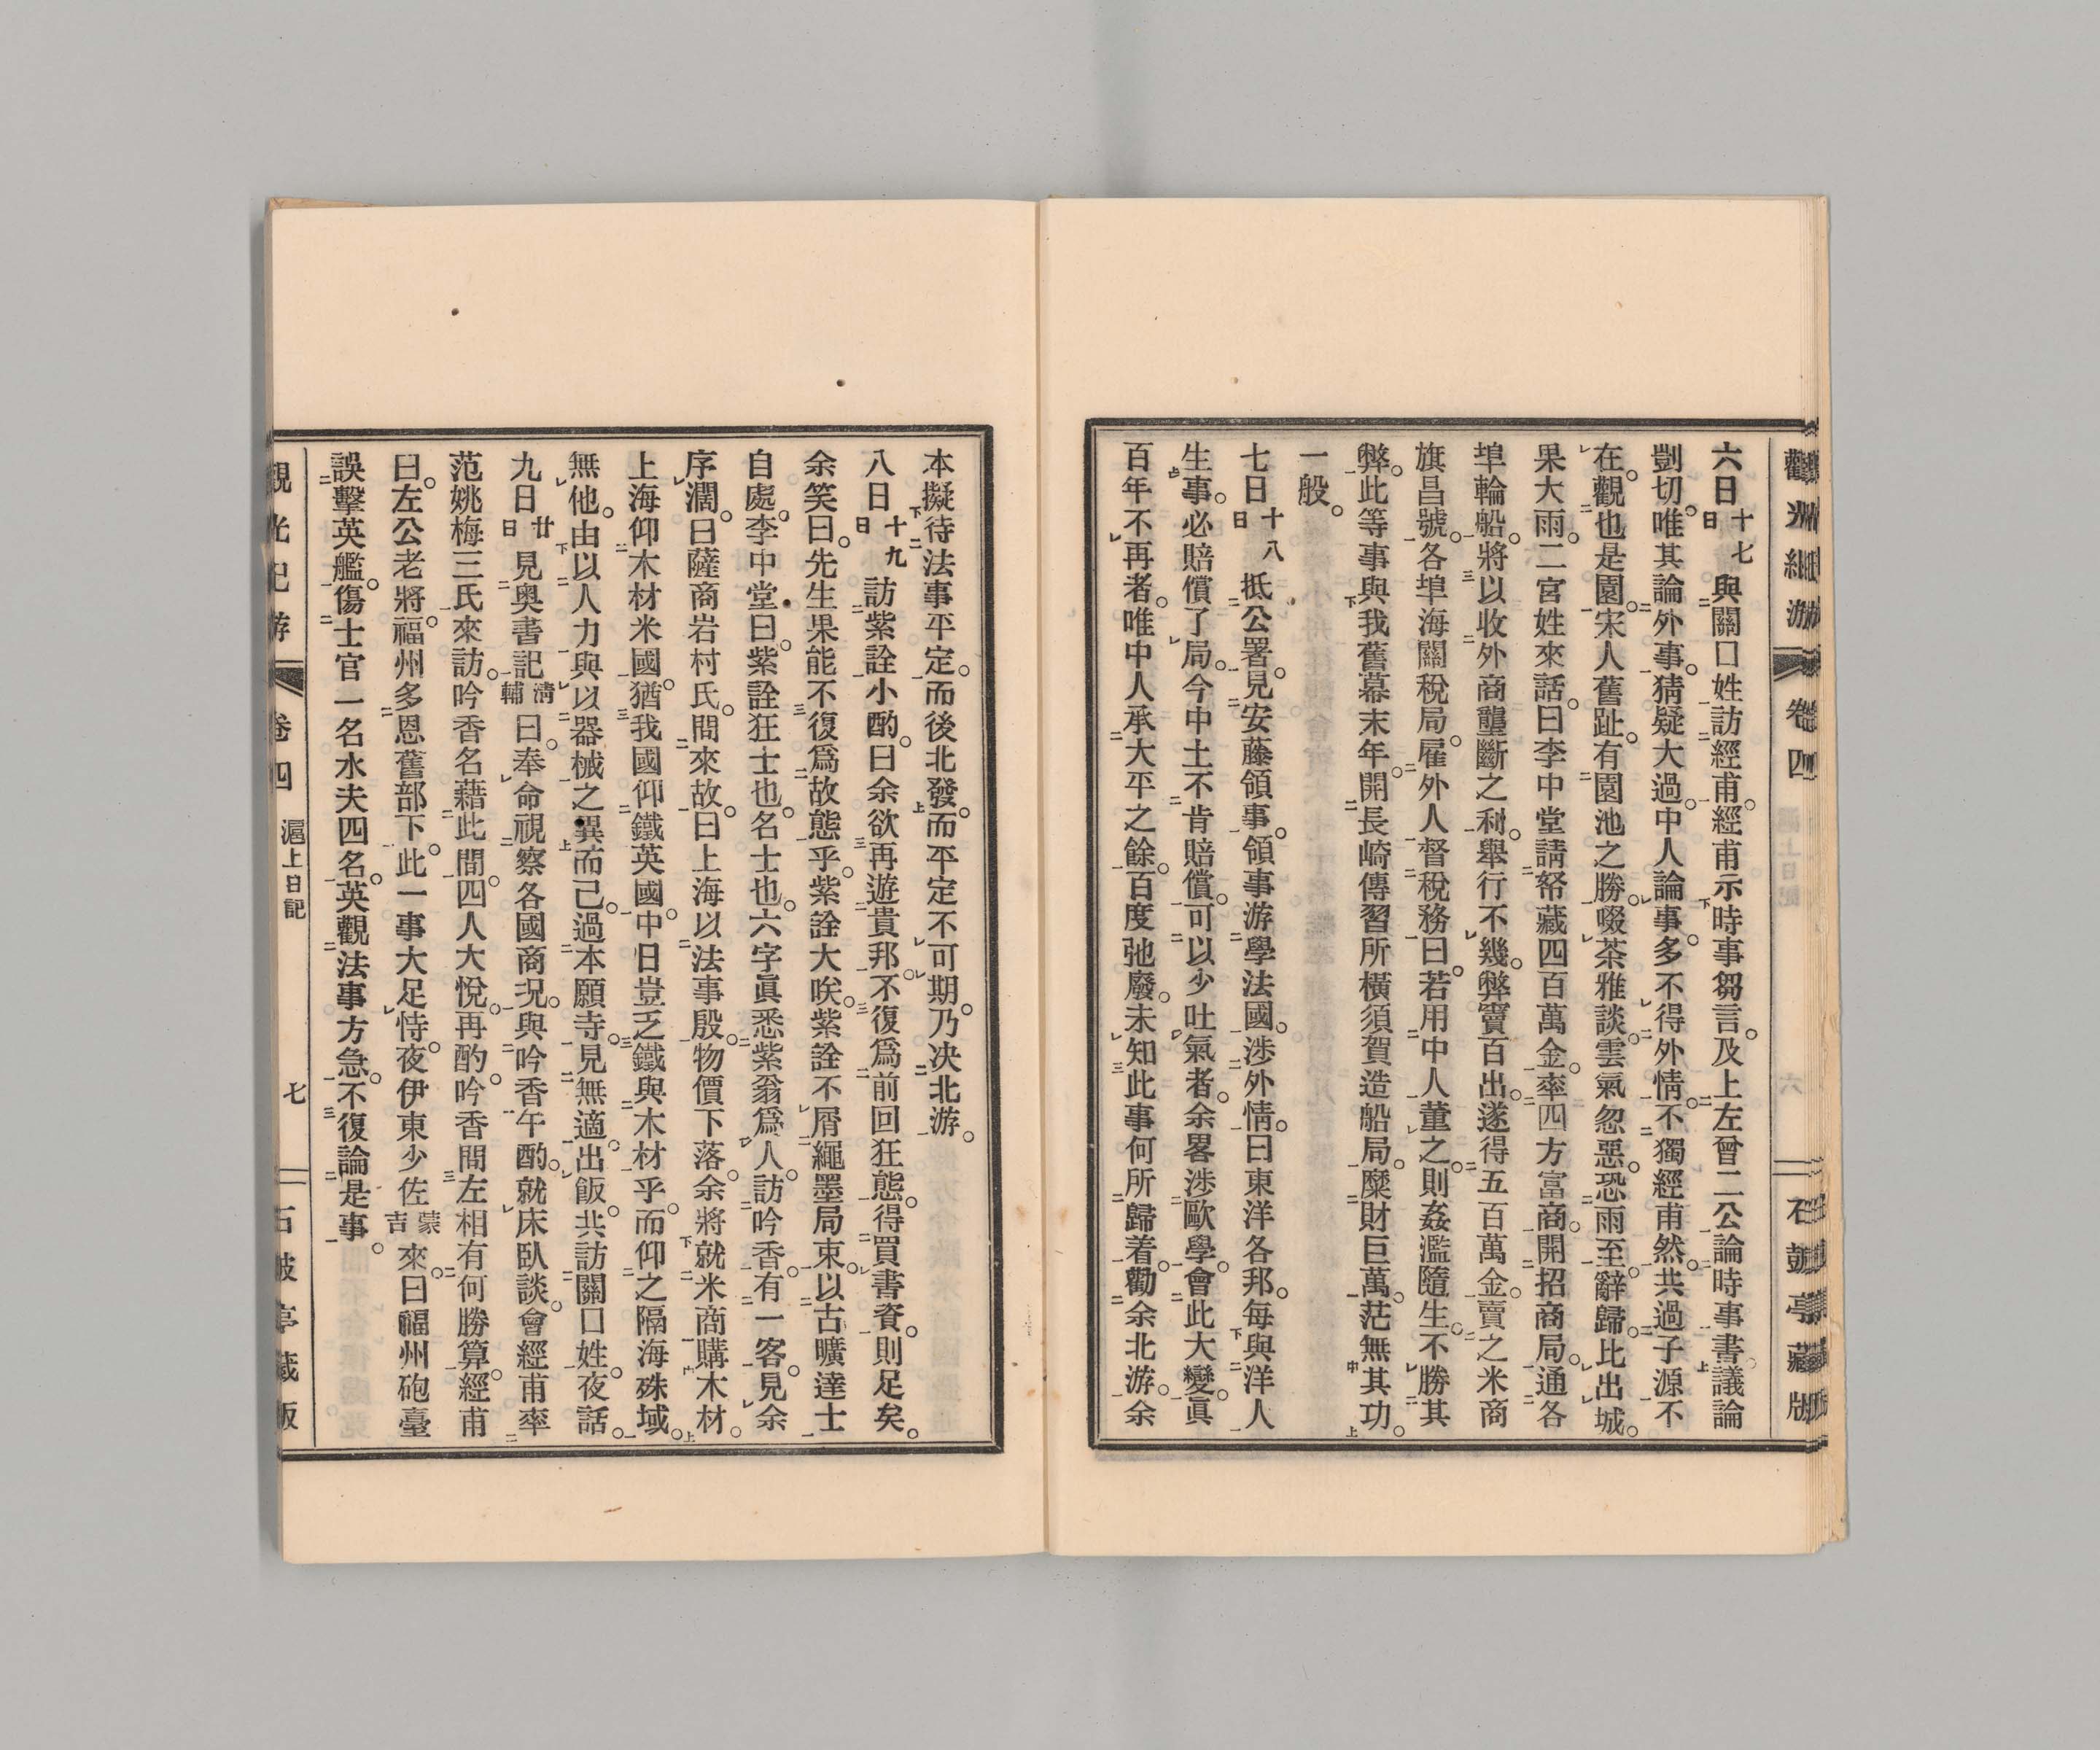 六日十七日與關口姓訪經甫。經甫示時事芻言。及上左曾二公論時事書。議論
剴切。唯其論外事。猜疑大過。中人論事。多不得外情。不獨經甫然。共過子源不
在。觀也是園。宋人舊趾。有園池之勝。啜茶雅談。雲氣忽惡。恐雨至。辭歸。比出城。
果大雨。二宮姓來話。曰李中堂請帑藏四百萬金。率四方富商。開招商局。通各
埠輪船。將以收外商壟斷之利。舉行不幾。弊竇百出。遂得五百萬金。賣之米商
旗昌號。各埠海關稅局。雇外人督稅務。曰。若用中人董之。則姦濫隨生。不勝其
弊。此等事與我舊幕末年。開長崎傳習所橫須賀造船局。糜財巨萬。茫無其功。
一般。
七日十八日抵公署。見安藤領事。領事游學法國。涉外情。曰東洋各邦。每與洋人
生事。必賠償了局。今中土不肯賠償。可以少吐氣者。余畧涉歐學。會此大變。眞
百年不再者。唯中人承大平之餘。百度弛廢。未知此事何所歸着。勸余北游。余
觀光紀游 卷四
本擬待法事平定。而後北發。而平定不可期。乃決北游。
八日十九日訪紫詮小酌。曰余欲再遊貴邦。不復爲前回狂態。得買書資。則足矣。
余笑曰。先生果能不復爲故態乎。紫詮大咲。紫詮不屑繩墨局束。以古曠達士
自處。李中堂曰。紫詮狂士也。名士也。六字眞悉紫翁爲人。訪吟香。有一客。見余
序濶。曰薩商岩村氏。問來故。曰上海以法事殷。物價下落。余將就米商購木材。
上海仰木材米國。猶我國仰鐵英國。中日豈乏鐵與木材乎。而仰之隔海殊域。
無他。由以人力與以器械之異而已。過本願寺。見無適。出飯。共訪關口姓。夜話。
九日廿日見奧書記淸輔曰。奉命視察各國商況。與吟香午酌。就床臥談。會經甫率
范姚梅三氏來訪。吟香名藉此間。四人大悅。再酌。吟香問左相有何勝算。經甫
曰。左公老將。福州多恩舊部下。此一事大足恃。夜伊東少佐蒙吉來。曰福州砲臺
誤擊英艦。傷士官一名水夫四名。英觀法事方急。不復論是事。
觀光紀游 卷四 滬上日記 七 石皷亭藏版